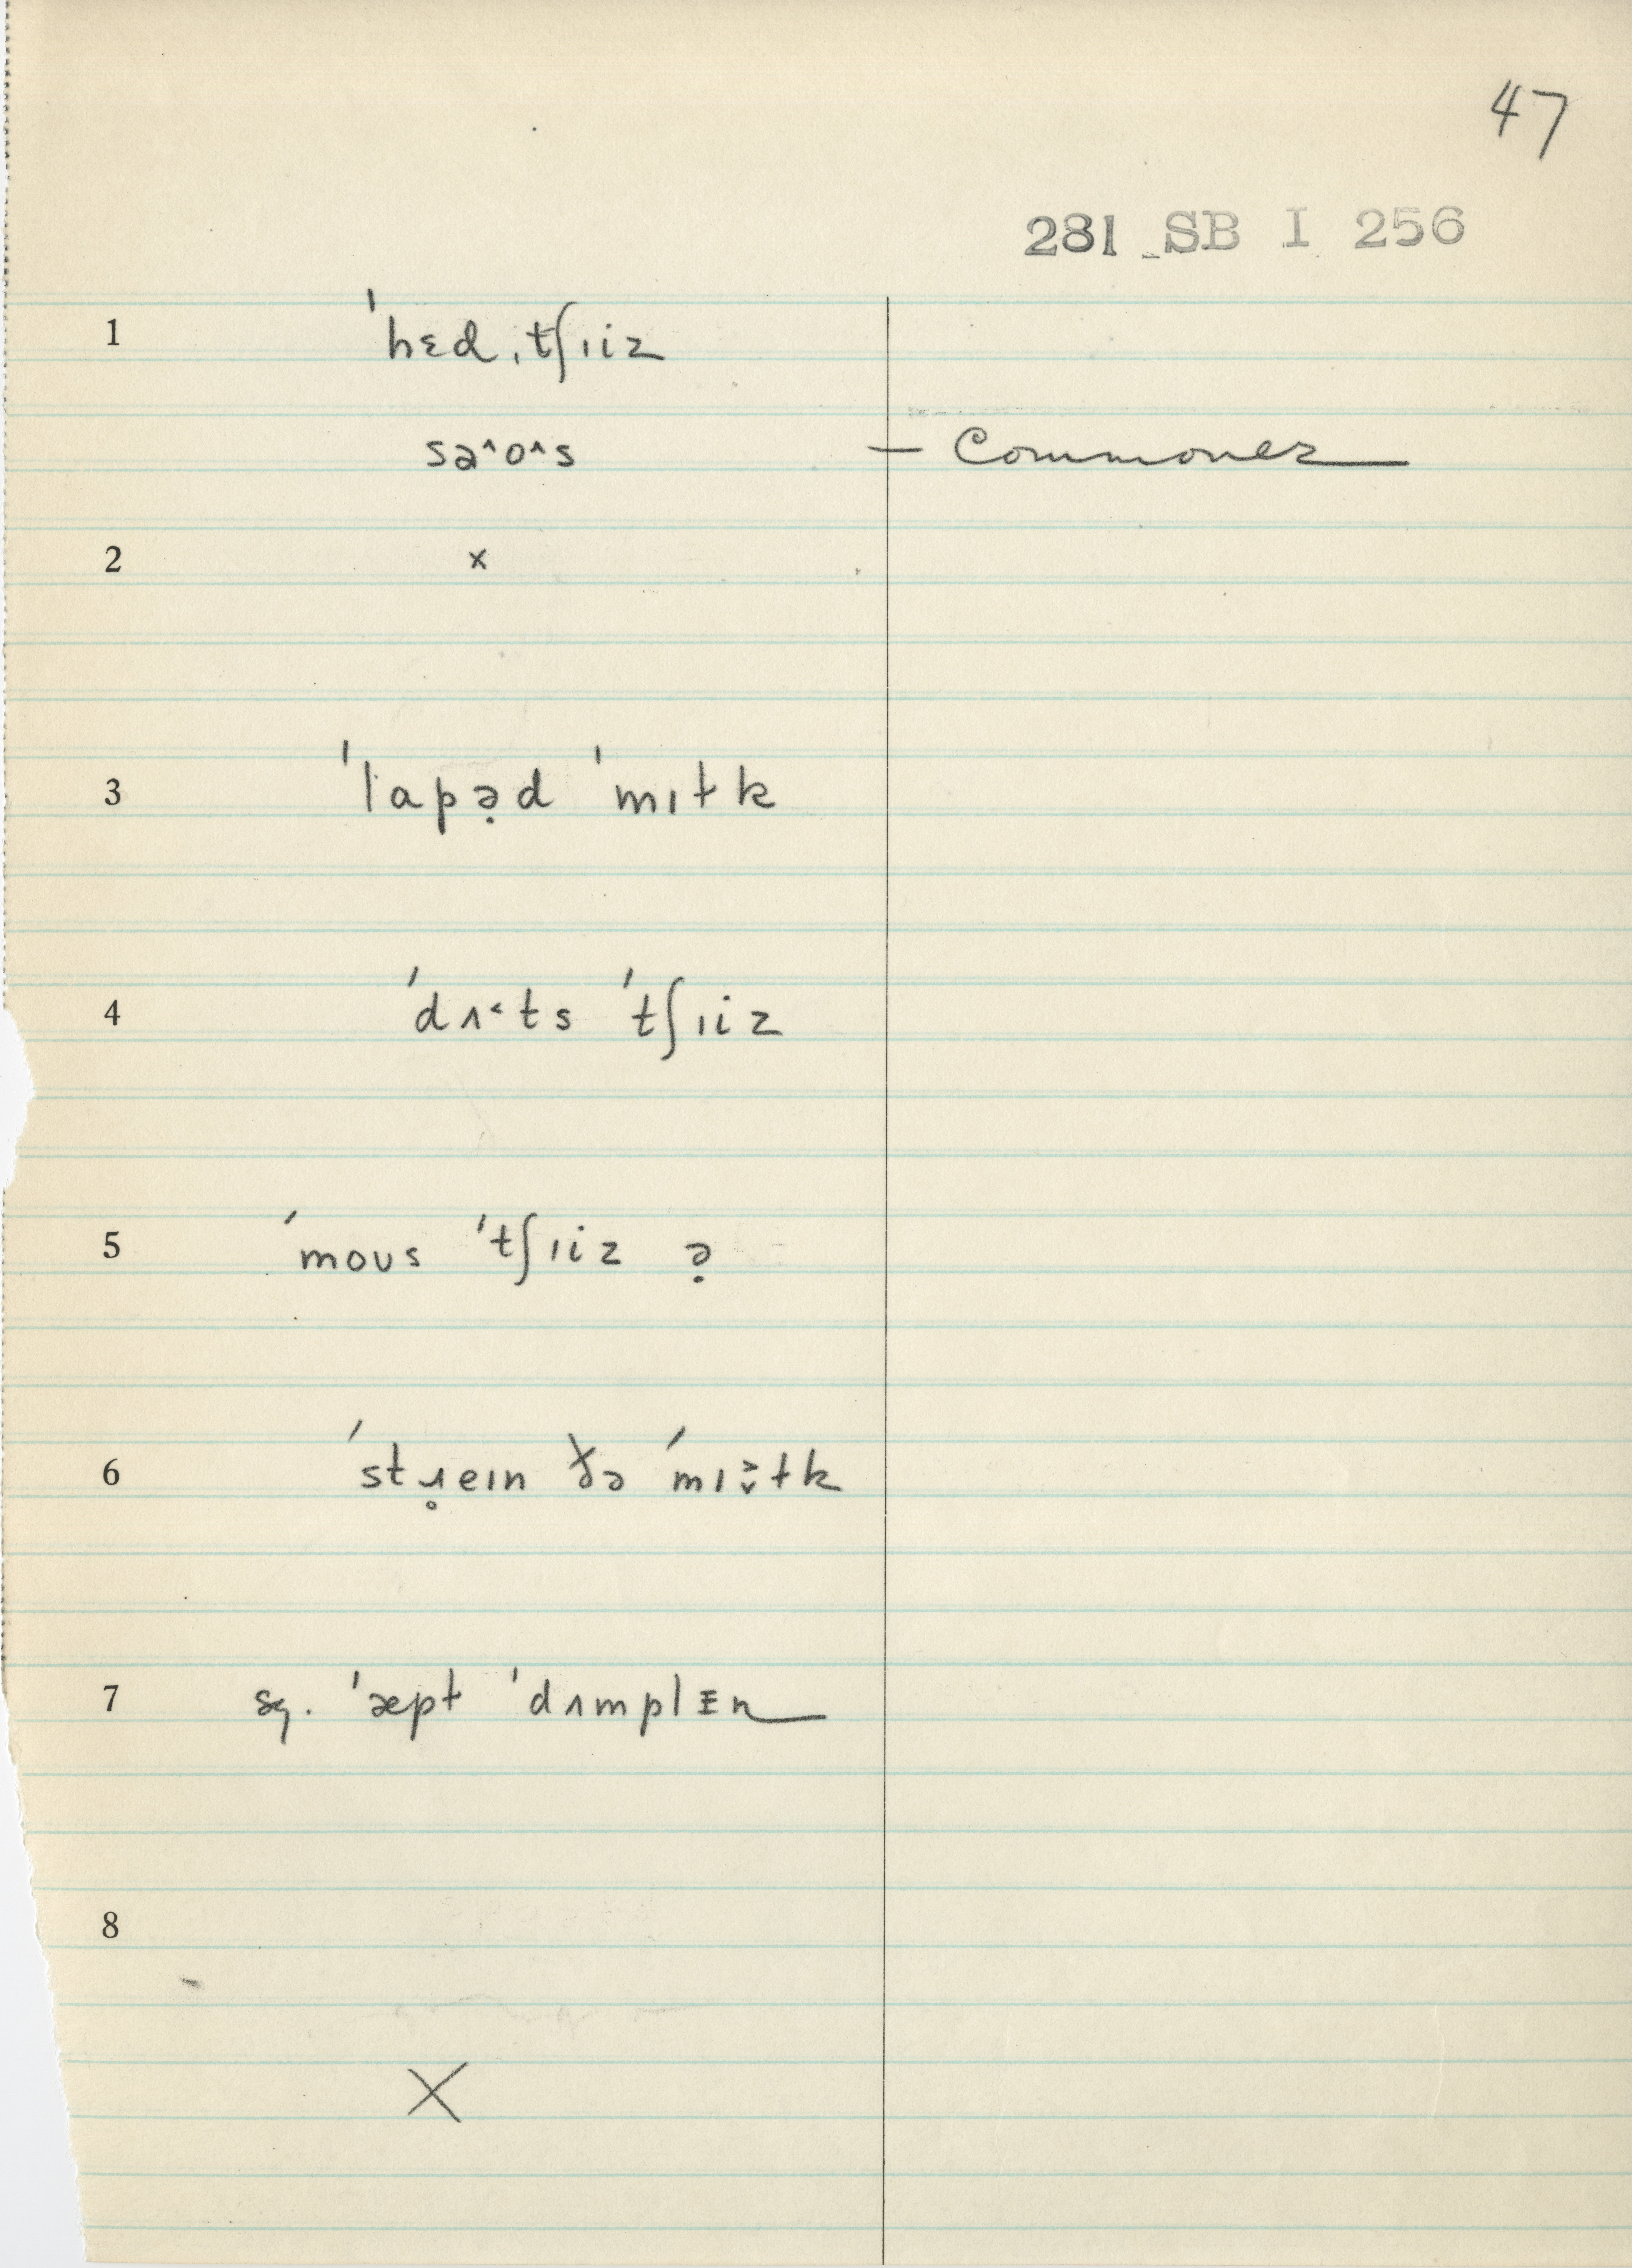 47
281 SB I 256
1 ˈhɛd ˌtʃɪiz
sə^o^s — Commoner
2 x
3 ˈlapə̣d ˈmɪɫk
4 ˈdʌ˂ts ˈtʃɪiz
5 ˈmoʊs ˈtʃɪiz ə̣
6 ˈstɹ̥eɪn ðə ˈmɪə̌ɫk
7 sg. ˈæpɫ ˈdʌmplɪn
8
X